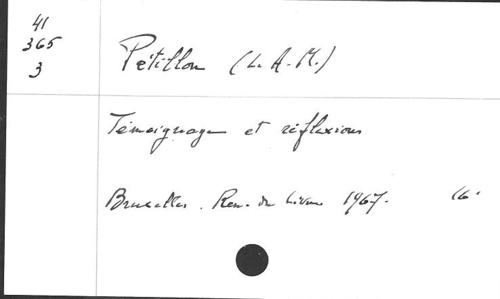 41
365
3
Pétillon (L. A. M.)
Témoignage et réflexions
Bruxelles. Ren. du Livre 1967. 16°